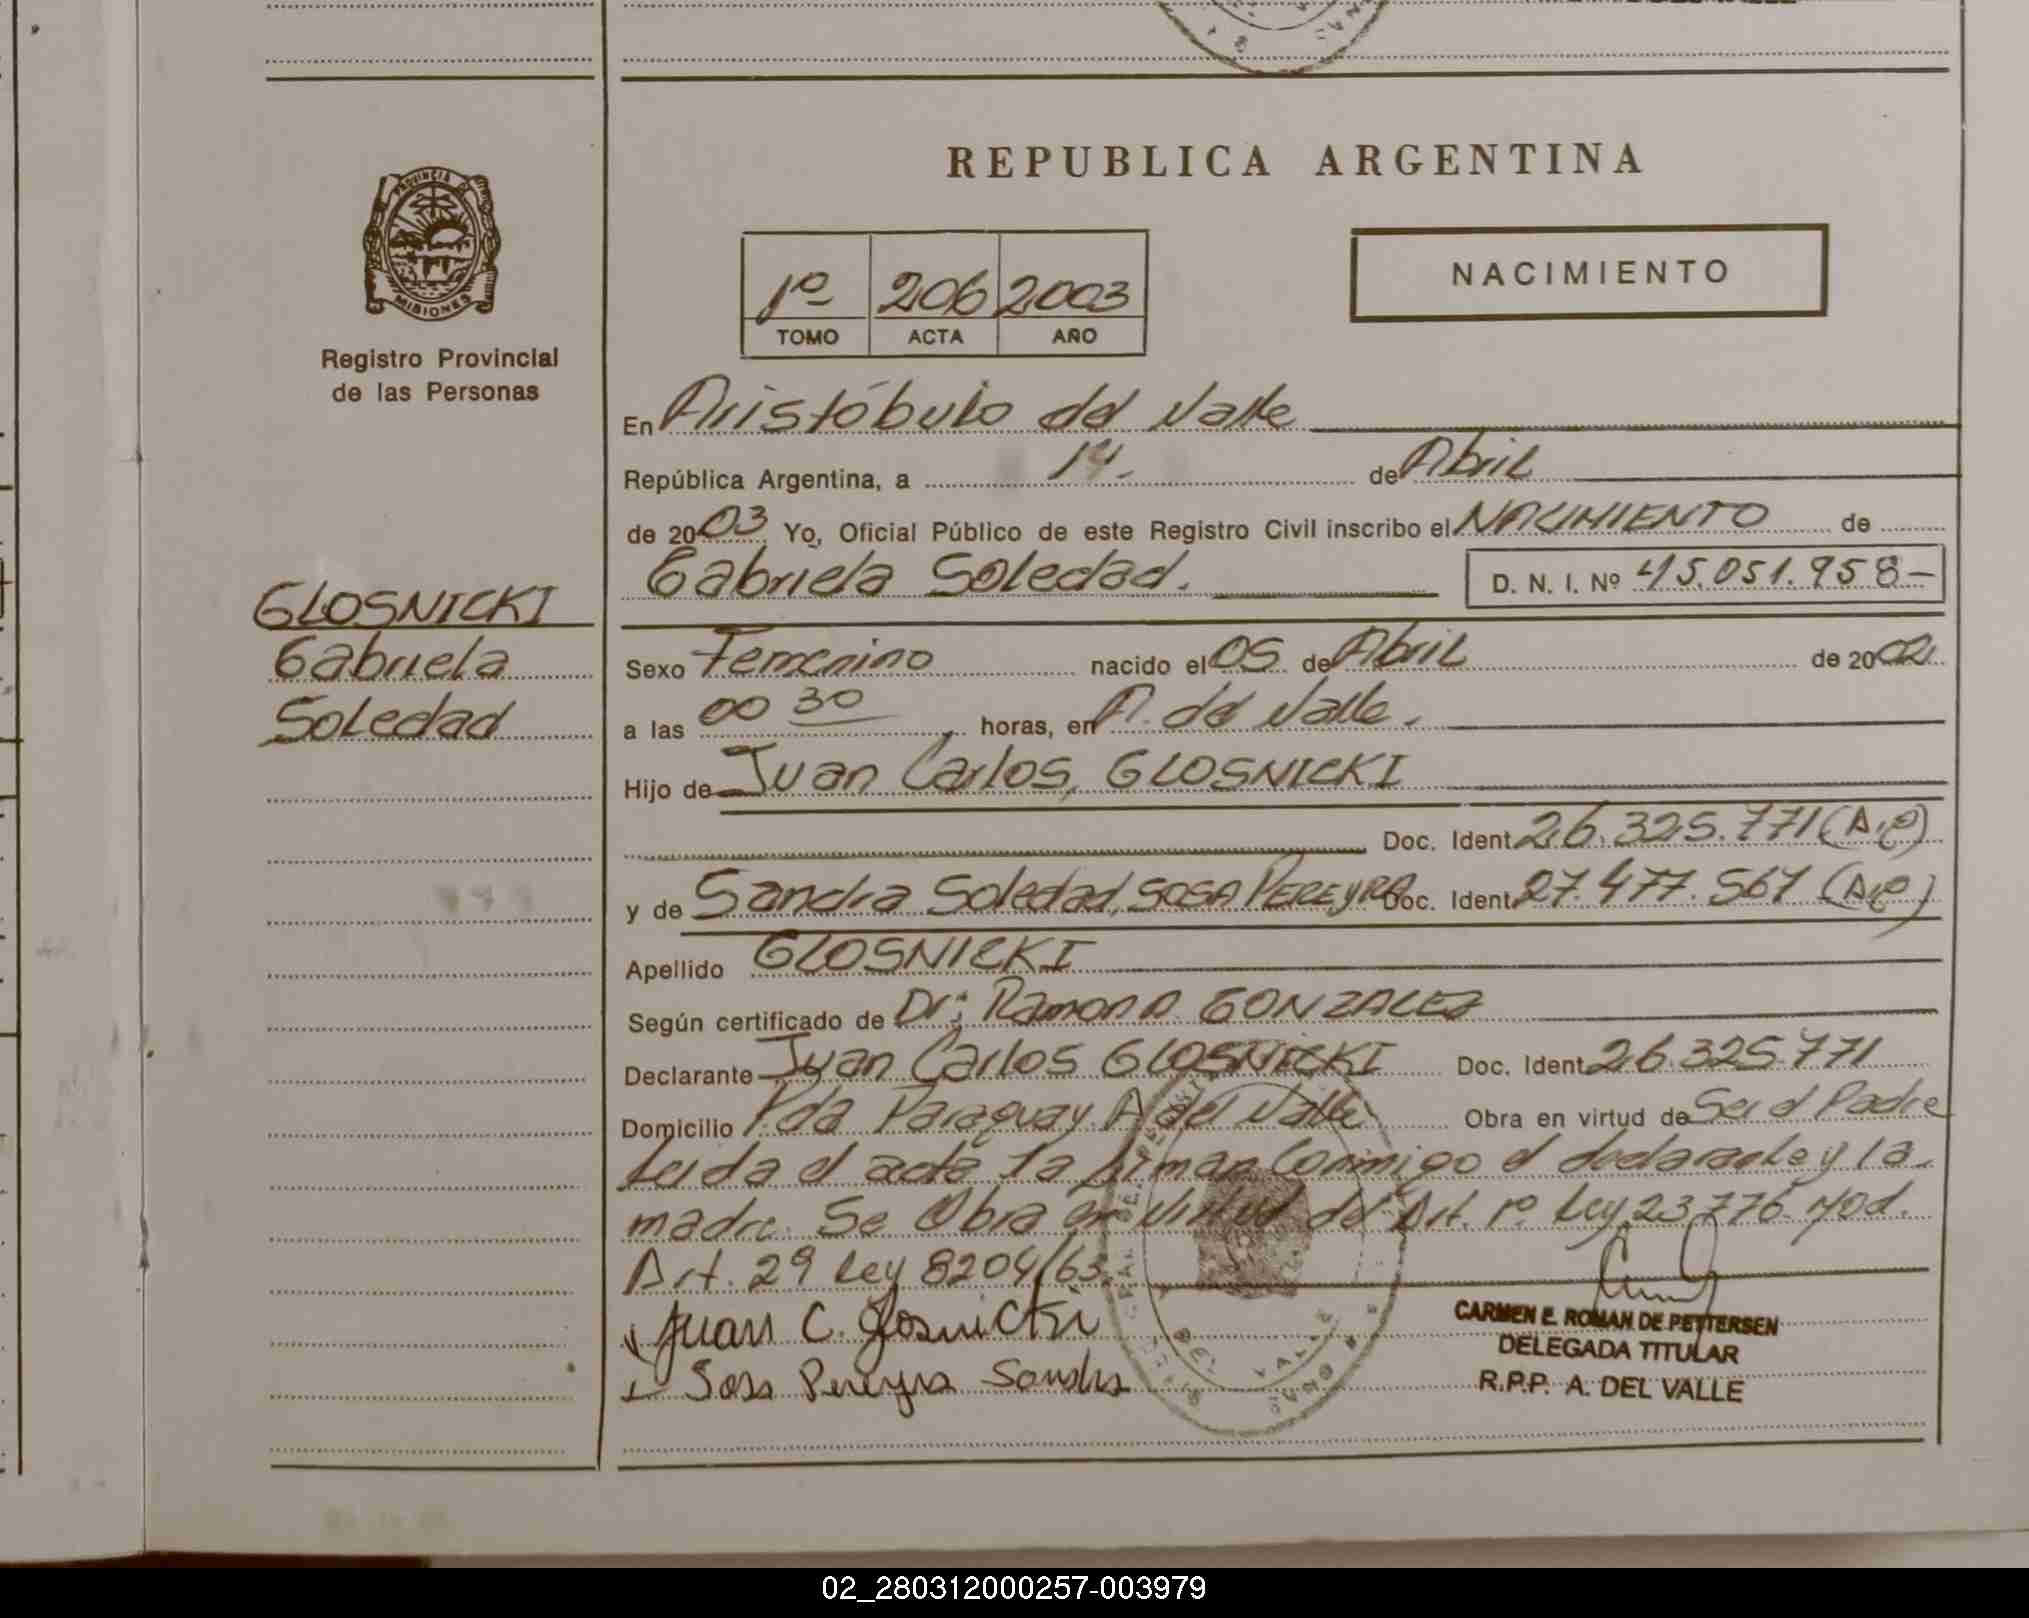 REPUBLICA ARGENTINA
PROVINCIA DE
MISIONES
Registro Provincial
de las Personas
1º 206 2003
TOMO ACTA AÑO
NACIMIENTO
En Aristóbulo del Valle
República Argentina, a 14. de Abril
de 2003 Yo, Oficial Público de este Registro Civil inscribo el NACIMIENTO de
Gabriela Soledad. D. N. I. Nº 45.051.958-
GLOSNICKI
Gabriela
Soledad
Sexo Femenino nacido el 05 de Abril de 2002
a las 00 30 horas, en A. del Valle.
Hijo de Juan Carlos, GLOSNICKI
Doc. Ident. 26.325.771 (A.P)
y de Sandra Soledad, SOSA PEREYRA Doc. Ident. 27.477.567 (A.P)
Apellido GLOSNICKI
Según certificado de Dr: Ramon A. GONZALEZ
Declarante Juan Carlos GLOSNICKI Doc. Ident. 26.325.771
Domicilio Pda Paraguay. A del Valle Obra en virtud de Ser el Padre
Leida el acta la firman Conmigo el declarante y la
madre. Se Obra en virtud del Art. 1º Ley 23.776 Mod.
Art. 29 Ley 8204/63.
Juan C. Glosnicki
Sosa Pereyra Sandra
CARMEN E. ROMAN DE PETTERSEN
DELEGADA TITULAR
R.P.P. A. DEL VALLE
DEL VALLE
02_280312000257-003979